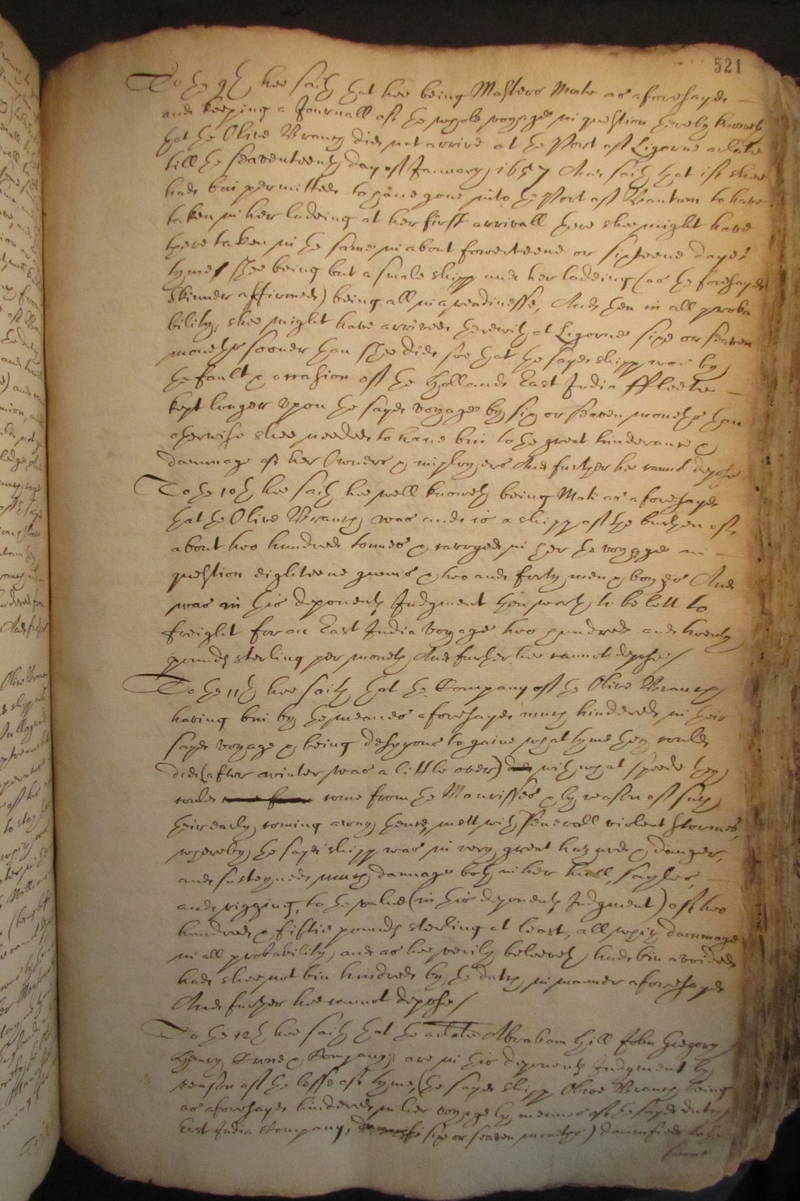 521
To the 9th hee saith that hee being Masters Mate as aforesayd
and keeping a Journall of the whole voyage in question thereby knoweth
that the Olive Branch did not arrive at the Port of Ligorne arlate
till the seaventeenth day of January 1657 And saith that if shee
had bin permitted to have gone into the Port of Bantam to have
taken in her ladeing at her first arrivall there shee might have
there taken in the same in about fowerteene or sixteene dayes
tyme, shee being but a smale shipp and her ladeing (as the foresayd
Skinner affirmed) being all in a readinesse, And then in all proba
bility, shee might have arrived therewith at Ligorne sixe or seaven
moneths sooner than shee did soe that the sayd shipp was by
the fault & occasion of the Hollands East India ffleete
kept longer upon the sayd voyage by six or seaven moneths than
otherwise shee needed to have bin to the great hinderance &
dammage of her Owners & imployers And further hee cannot depose
To the 10th hee saith hee well knoweth being Mate as aforesayd
that the Olive Branch was and is a shipp of the burthen of
about two hundred tonnes & carryed in her the voyage in
question eighteene gunns & two and forty men & boyes And
was in his deponents Judgment then worth to be lett to
freight for an East India voyage two hundred and twenty
pounds sterling per moneth And further hee cannot depose/
To the 11th hee saith that the Company of the Olive Branch
having bin by the meanes aforesayd much hindered in their
sayd voyage & being desyrous to gaine what tyme they could
did (after winter was a little over) with what speede they
could come from the Maurisses & by reason of such
their early coming away thence mett with severall violent stormes,
whereby the sayd shipp was in very great hazard & danger,
and susteyned much dammage both in her hull, sayles,
and rigging, to the value (in his deponents Judgment) of two
hundred & fiftie pounds sterling at least, all which dammage
in all probability, and as hee verily beleeveth had bin avoided
had shee not bin hindred by the dutch in manner aforesayd
And further hee cannot depose/
To the 12th hee saith that the arlate Abraham Hill John Gregory
Henry & Company, are in his deponents Judgment by
reason of the losse of tyme (the sayd shipp Olive Branch being
as aforesayd hindered in her voyage by meanes of the sayd dutch
East India Company, six or seaven moneths) damnified to the